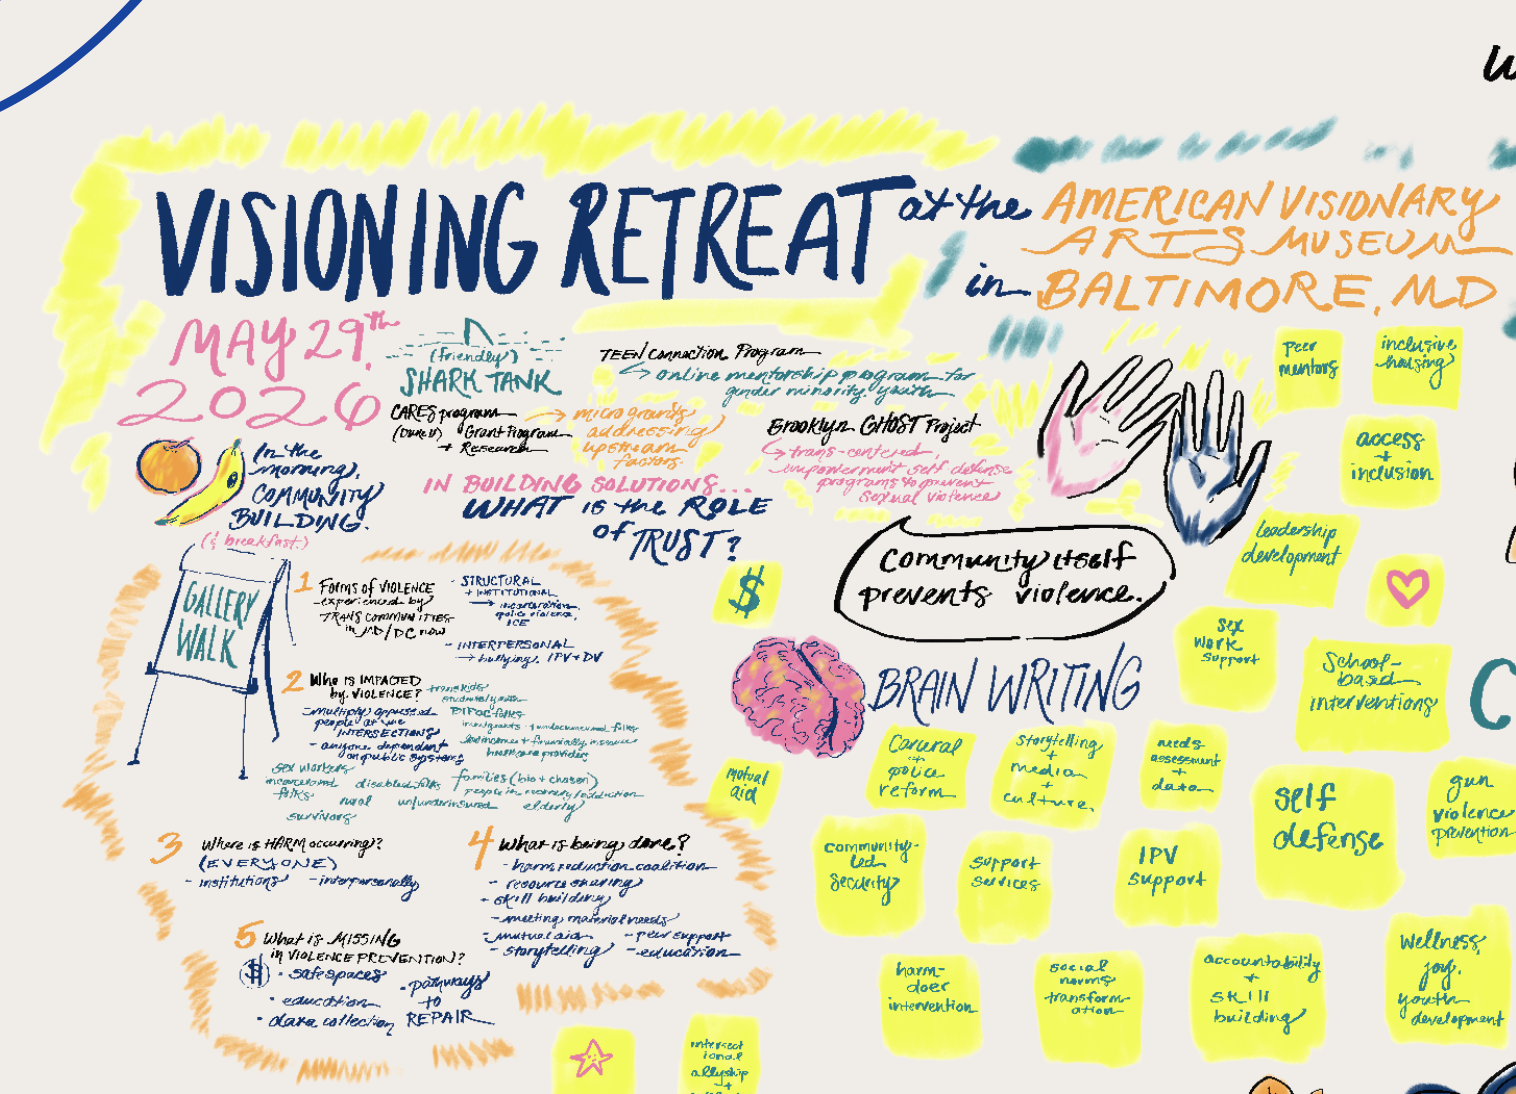 VISIONING RETREAT at the AMERICAN VISIONARY
ARTS MUSEUM
in BALTIMORE, MD
MAY 29th,
2026
(friendly)
SHARK TANK
TEEN Connection Program
online mentorship program for
gender minority youth
CARES program
Grant Program
+ Research
micro grants
addressing
upstream
factors.
Brooklyn GHOST Project
trans-centered,
empowerment self defense
programs to prevent
sexual violence
In the
morning,
COMMUNITY
BUILDING.
(& breakfast!)
IN BUILDING SOLUTIONS...
WHAT is the ROLE
of TRUST?
Community itself
prevents violence.
GALLERY
WALK
1 FORMS of VIOLENCE
experienced by
TRANS COMMUNITIES
in MD/DC now
- STRUCTURAL
+ INSTITUTIONAL
→ incarceration,
police violence,
ICE
- INTERPERSONAL
→ bullying, IPV + DV
2 Who is IMPACTED
by VIOLENCE?
- multiply oppressed
people at the
INTERSECTIONS
- anyone dependent
on public systems
trans kids
students/youth
BIPOC folks
immigrants + undocumented folks
low income + financially insecure
healthcare providers
sex workers
incarcerated
folks
disabled folks
families (bio + chosen)
people in recovery/addiction
rural
un/underinsured
elderly
survivors
3 Where is HARM occurring?
(EVERYONE)
- institutions - interpersonally
4 What is being done?
- harm reduction coalition
- resource sharing
- skill building
- meeting material needs
- mutual aid - peer support
- storytelling - education
5 What is MISSING
in VIOLENCE PREVENTION?
$
• safe spaces
• education
• data collection
• pathways
to
REPAIR
$
BRAIN WRITING
Peer
mentors
inclusive
housing
access
+
inclusion
leadership
development
sex
work
support
School-
based
interventions
mutual
aid
Carceral
+
police
reform
storytelling
+
media
+
culture
needs
assessment
+
data
self
defense
gun
violence
prevention
community-
led
security
support
services
IPV
support
harm-
doer
intervention
social
norms
transform-
ation
accountability
+
skill
building
wellness,
joy,
youth
development
intersect
ional
allyship
+